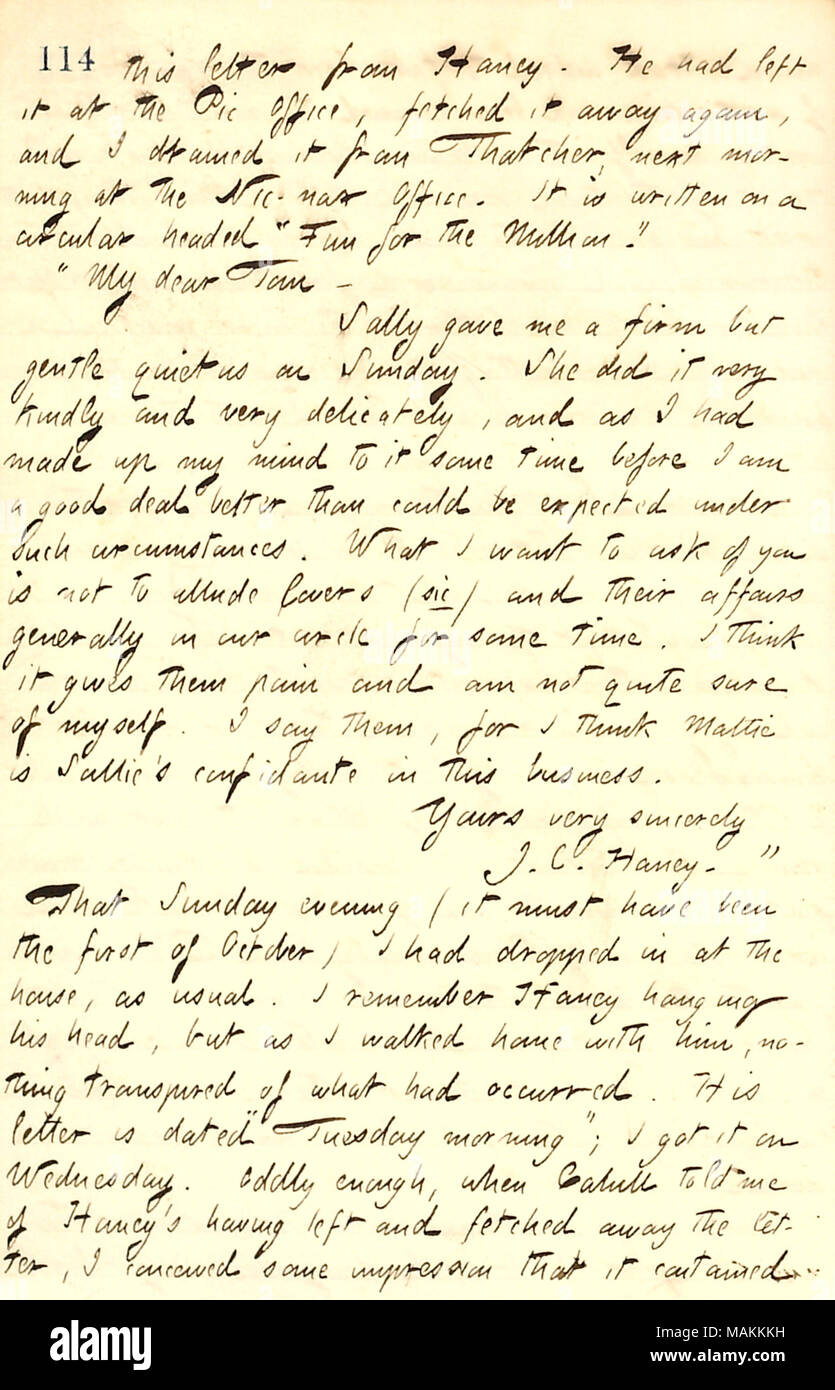 114
this letter from Haney. He had left
it at the Pic Office, fetched it away again,
and I obtained it from Thatcher, next mor-
ning at the Nic-nax Office. It is written on a
circular headed "Fun for the Million."
"My dear Tom —
Sally gave me a firm but
gentle quietus on Sunday. She did it very
kindly and very delicately, and as I had
made up my mind to it some time before I am
a good deal better than could be expected under
such circumstances. What I want to ask of you
is not to allude lovers (sic) and their affairs
generally in our circle for some time. I think
it gives them pain and am not quite sure
of myself. I say them, for I think Mattie
is Sallie's confidante in this business.
Yours very sincerely
J. C. Haney. "
That Sunday evening (it must have been
the first of October) I had dropped in at the
house, as usual. I remember Haney hanging
his head, but as I walked home with him, no-
thing transpired of what had occurred. His
letter is dated "Tuesday morning"; I got it on
Wednesday. Oddly enough, when Cahill told me
of Haney's having left and fetched away the let-
ter, I conceived some impression that it contained
alamy
Image ID: MAKKKH
www.alamy.com